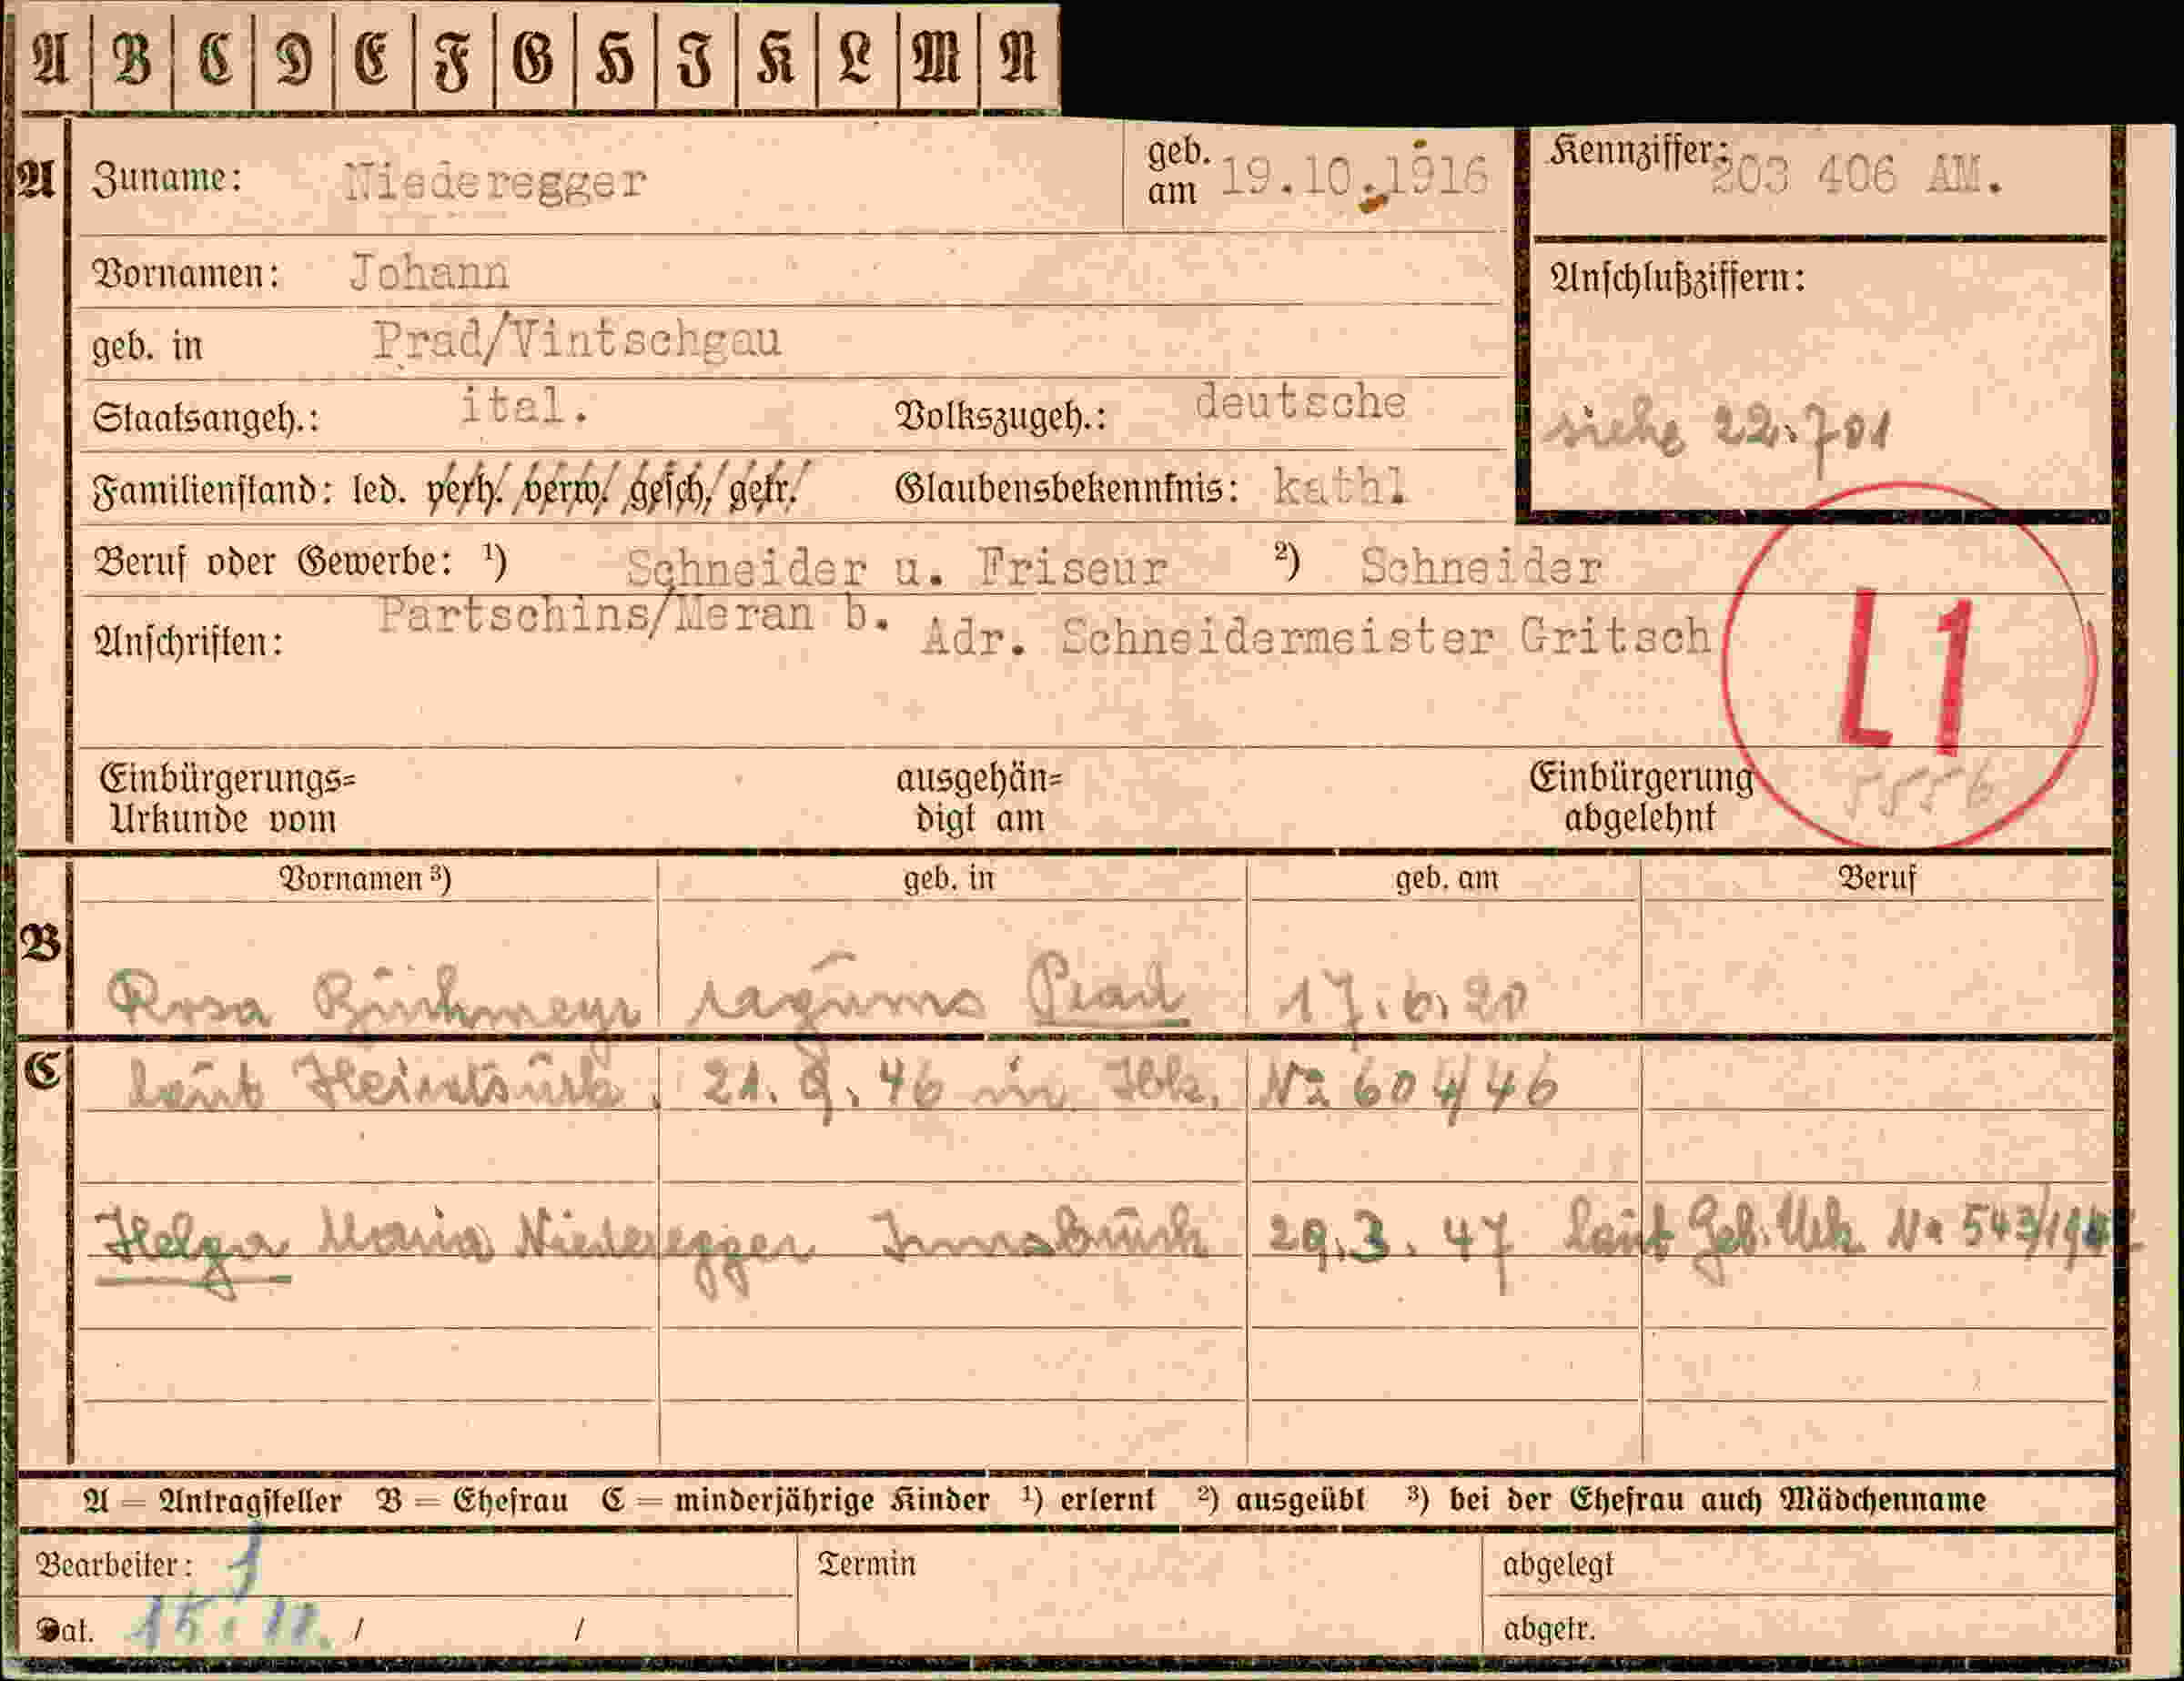 A B C D E F G H I K L M N
A Zuname: Niederegger geb. am 19.10.1916 Kennziffer: 203 406 AM.
Vornamen: Johann Anschlußziffern:
geb. in Prad/Vintschgau
Staatsangeh.: ital. Volkszugeh.: deutsche siehe 22.701
Familienstand: led. verh. verw. gesch. getr. Glaubensbekenntnis: kathl
Beruf oder Gewerbe: ¹) Schneider u. Friseur ²) Schneider
Anschriften: Partschins/Meran b. Adr. Schneidermeister Gritsch
L1
Einbürgerungs= ausgehän= Einbürgerung
Urkunde vom digt am abgelehnt
5556
Vornamen ³) geb. in geb. am Beruf
B
Rosa Prad 17.6.20
C laut Heiratsurk. 21. 9. 46 in Ibk. No 604/46
Helga Maria Niederegger Innsbruck 29.3.47 laut Geb. Urk. No 543/194
A = Antragsteller B = Ehefrau C = minderjährige Kinder ¹) erlernt ²) ausgeübt ³) bei der Ehefrau auch Mädchenname
Bearbeiter: Termin abgelegt
Dat. 15. 11. / / abgetr.